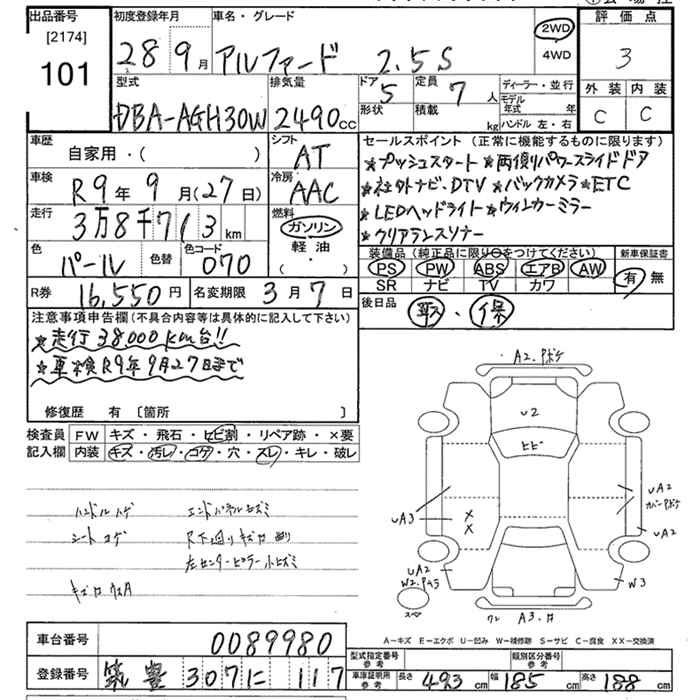 出品番号
[2174]
101
初度登録年月
28 9月
車名・グレード
アルファード 2.5S
2WD
4WD
評価点
3
外装 内装
C C
型式
DBA-AGH30W
排気量
2490cc
ドア
5
形状
定員
7人
積載
kg
ディーラー・並行
モデル年式 年
ハンドル 左・右
車歴
自家用・( )
シフト
AT
車検
R9年9月(27日)
冷房
AAC
走行
3万8千713km
燃料
ガソリン
軽油
・
( )
色
パール
色替
色コード
070
R券
16,550円
名変期限 3月7日
セールスポイント (正常に機能するものに限ります)
★プッシュスタート★両側パワースライドドア
★社外ナビ、DTV★バックカメラ★ETC
★LEDヘッドライト★ウィンカーミラー
★クリアランスソナー
装備品 (純正品に限り○をつけてください)
PS PW ABS エアB AW
SR ナビ TV カワ
新車保証書
有 無
後日品
取・保
注意事項申告欄 (不具合内容等は具体的に記入して下さい)
★走行38,000km台!!
★車検R9年9月27日まで
修復歴 有 [箇所 ]
検査員記入欄
FW キズ・飛石・ヒビ割・リペア跡・×要
内装 キズ・汚レ・コゲ・穴・スレ・キレ・破レ
ハンドルハゲ エンドパネルヒズミ
シートコゲ R下廻りキズ凹有り
左センターピラー小ヒズミ
A2.
U2
ヒビ
UA3
×
×
UA2
UA2
UA2
W2.
W3
スペ
A3.
A-キズ E-エクボ U-凹み W-補修跡 S-サビ C-腐食 XX-交換済
車台番号
0089980
登録番号
筑豊 307に 117
型式指定番号
参考
類別区分番号
参考
車庫証明用
参考
長さ 493cm 幅 185cm 高さ 188cm